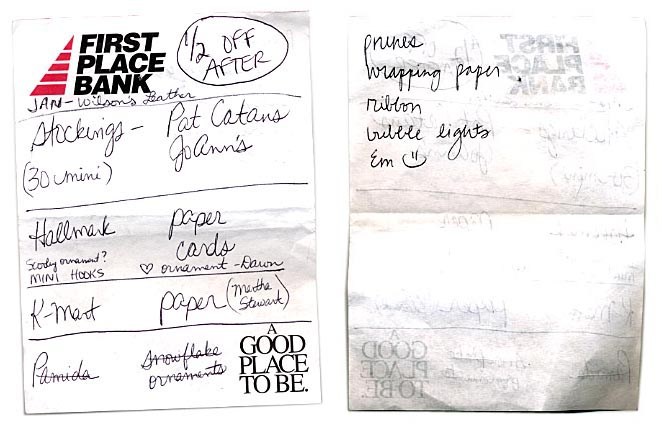 FIRST
PLACE
BANK
1/2 OFF
AFTER
JAN - Wilson's Leather
Stockings - Pat Catans
JoAnn's
(30 mini)
Hallmark paper
cards
Scooby ornament?
MINI HOOKS ♡ ornament - Dawn
K-Mart paper (Martha
Stewart)
Pamida Snowflake
ornaments
A
GOOD
PLACE
TO BE.
prunes
wrapping paper
ribbon
bubble lights
Em